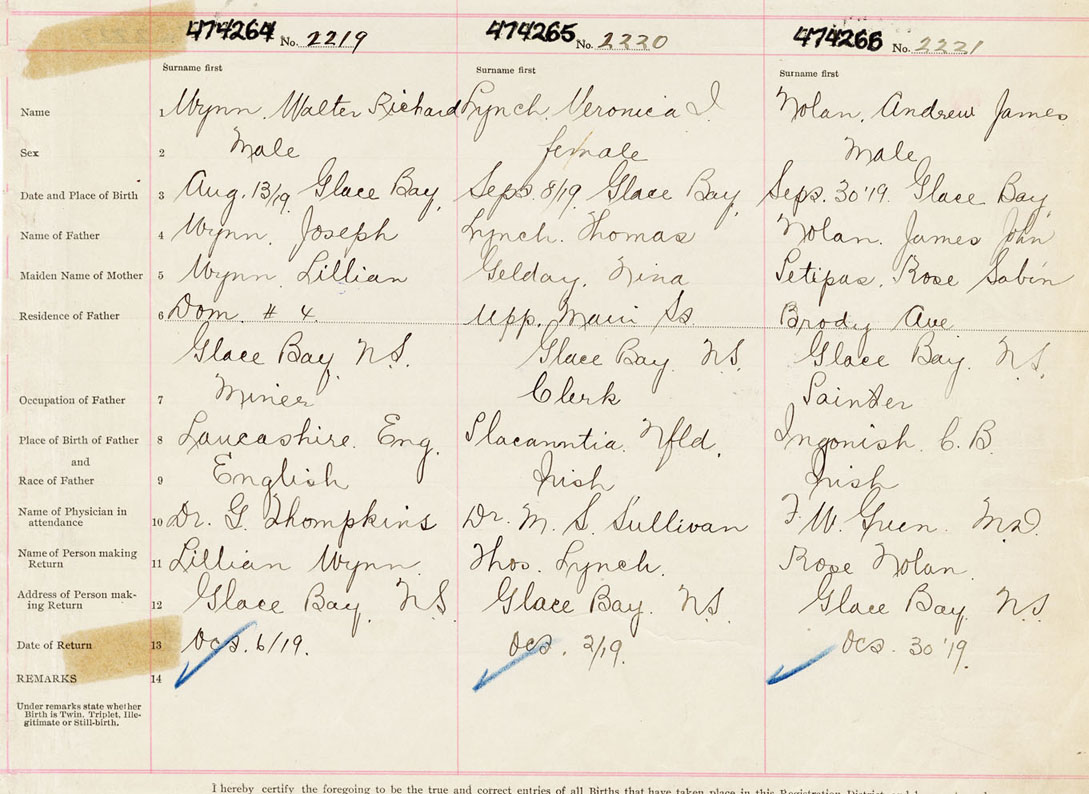 474264 No. 2219 474265 No. 2220 474266 No. 2221
Surname first Surname first Surname first
Name 1 Wynn. Walter Richard Lynch. Veronica I. Nolan. Andrew James
Sex 2 Male female Male
Date and Place of Birth 3 Aug. 13/19. Glace Bay. Sept. 8/19 Glace Bay. Sept. 30 '19. Glace Bay
Name of Father 4 Wynn. Joseph Lynch. Thomas Nolan. James John
Maiden Name of Mother 5 Wynn. Lillian Gelday. Nina Petipas. Rose Sabin
Residence of Father 6 Dom. # 4. Upp. Main St. Brody Ave
Glace Bay. N.S. Glace Bay. N.S. Glace Bay. N.S.
Occupation of Father 7 Miner Clerk Painter
Place of Birth of Father 8 Lancashire. Eng. Placanntia. Nfld. Ingonish. C. B.
and
Race of Father 9 English Irish Irish
Name of Physician in
attendance 10 Dr. G. Thompkins Dr. M. S. Sullivan F. W. Green. M.D.
Name of Person making
Return 11 Lillian Wynn. Thos. Lynch. Rose Nolan.
Address of Person mak-
ing Return 12 Glace Bay. N.S. Glace Bay. N.S. Glace Bay. N.S.
Date of Return 13 Oct. 6/19. Oct. 2/19. Oct. 30 '19.
REMARKS 14
Under remarks state whether
Birth is Twin, Triplet, Ille-
gitimate or Still-birth.
I hereby certify the foregoing to be the true and correct entries of all Births that have taken place in this Registration District